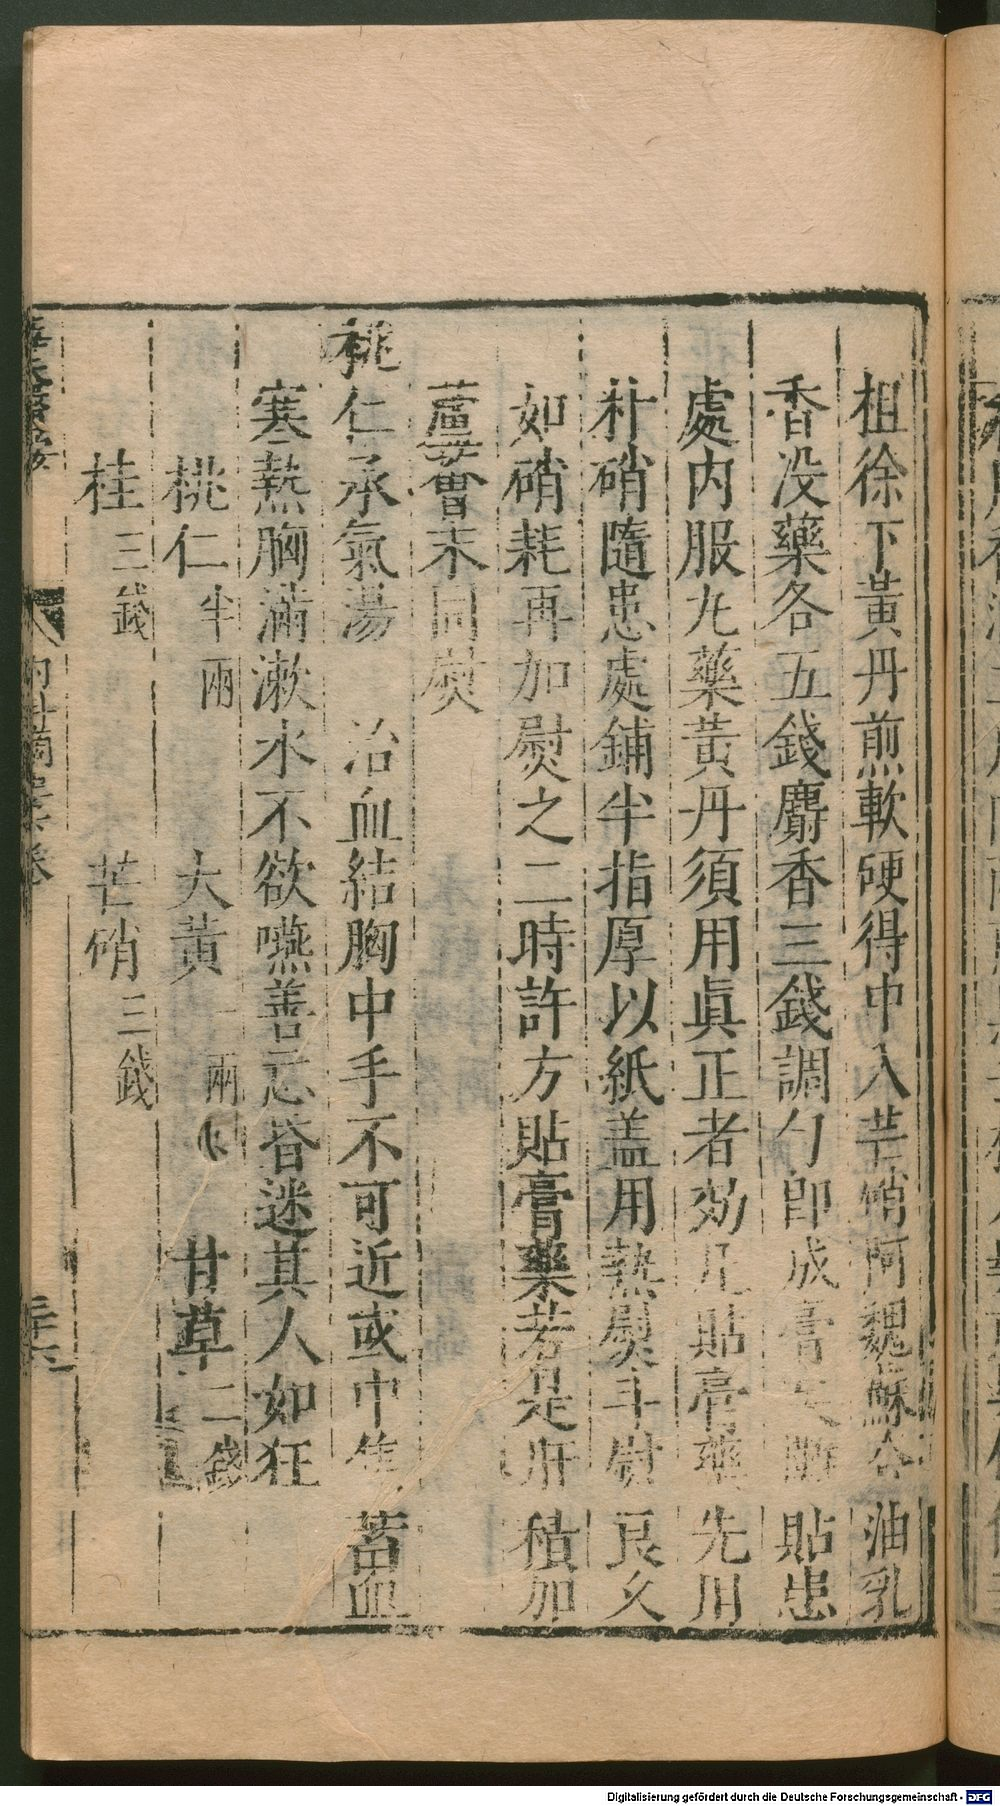 柤徐下黃丹煎軟硬得中入芒硝阿魏蘇合油乳
香没藥各五錢麝香三錢調勻即成膏矣貼患
處内服丸藥黃丹須用眞正者効凡貼膏藥先用
朴硝隨患處鋪半指厚以紙盖用熱熨斗熨良久
如硝耗再加熨之二時許方貼膏藥若是肝積加
蘆薈末同熨
桃仁承氣湯　治血結胸中手不可近或中焦蓄血
寒熱胸滿漱水不欲嚥善忘昏迷其人如狂
桃仁半兩　大黃一兩　甘草二錢
桂三錢　芒硝三錢
内科摘 卷
三十六
Digitalisierung gefördert durch die Deutsche Forschungsgemeinschaft - DFG